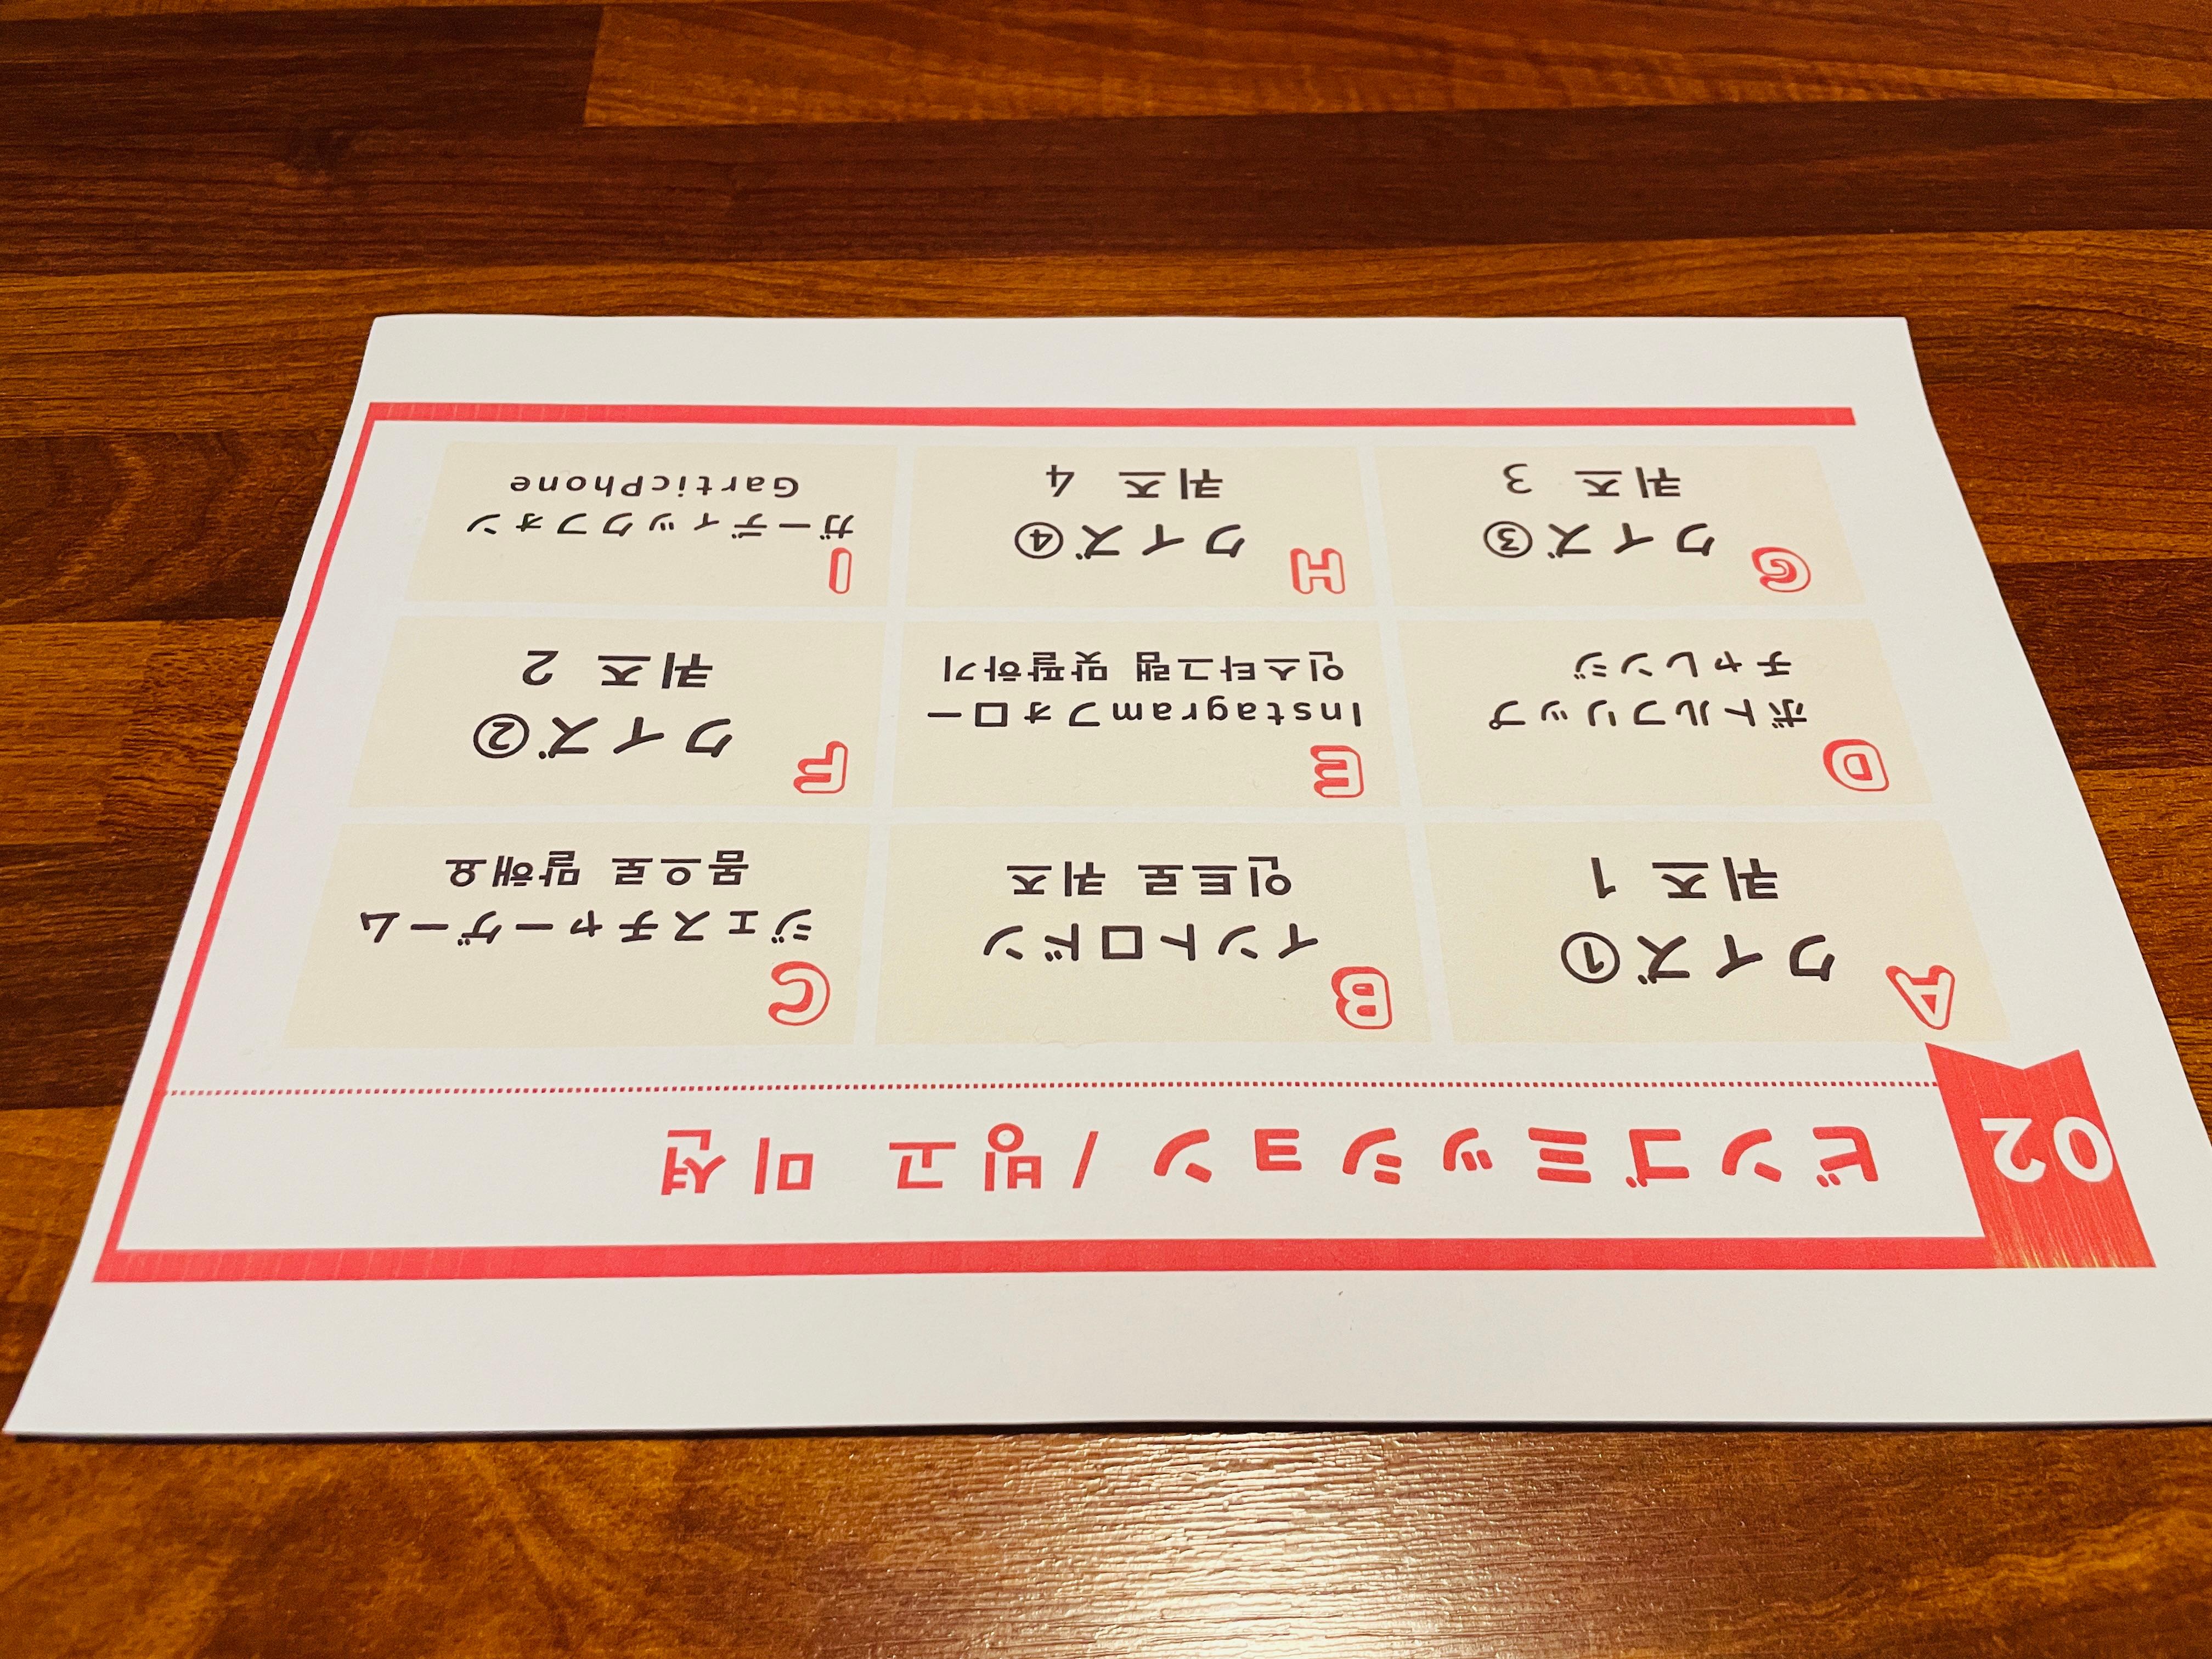 02
ビンゴミッション / 빙고 미션
A
クイズ①
퀴즈 1
B
イントロドン
인트로 퀴즈
C
ジェスチャーゲーム
몸으로 말해요
D
ボトルフリップ
チャレンジ
E
Instagramフォロー
인스타그램 맞팔하기
F
クイズ②
퀴즈 2
G
クイズ③
퀴즈 3
H
クイズ④
퀴즈 4
I
ガーディックフォン
GarticPhone